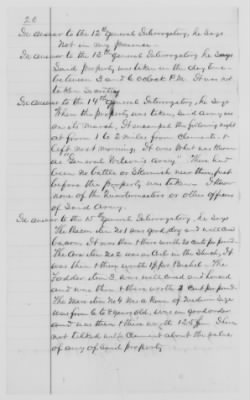 20
In answer to the 12th General Interrogatory, he says
Not in my presence.
In answer to the 13th General Interrogatory, he says
Said property was taken in the day time
between 3 and 6 Oclock P.M. It was not
taken Secretly
In answer to the 14th General Interrogatory, he says
When the property was taken, said army was
on its march, It encamped the following night
at from 1 to 2 miles from Claimants &
left next morning. It was what was known
as "General Wilson's Army" There had
been no battle or Skirmish near there just
before the property was taken. I knew
none of the Quartermasters or other officers
of Said Army.
In answer to the 15th General Interrogatory, he says
The Bacon Item No 1 was good dry and well cured
bacon. It was then & there worth 20 cents per pound.
The Corn Item No 2 was on Cob in the Shuck, It
was then & there worth $1 per bushel. The
Fodder Item 3, was well cured and housed
and was then & there worth 2 cents per pound.
The Mare Item No 4 was a Roan of Medium Size
was from 6 to 8 years old, was in good order
and was then & there worth 125 $. I have
not talked with Claimant about the value
of any of said property